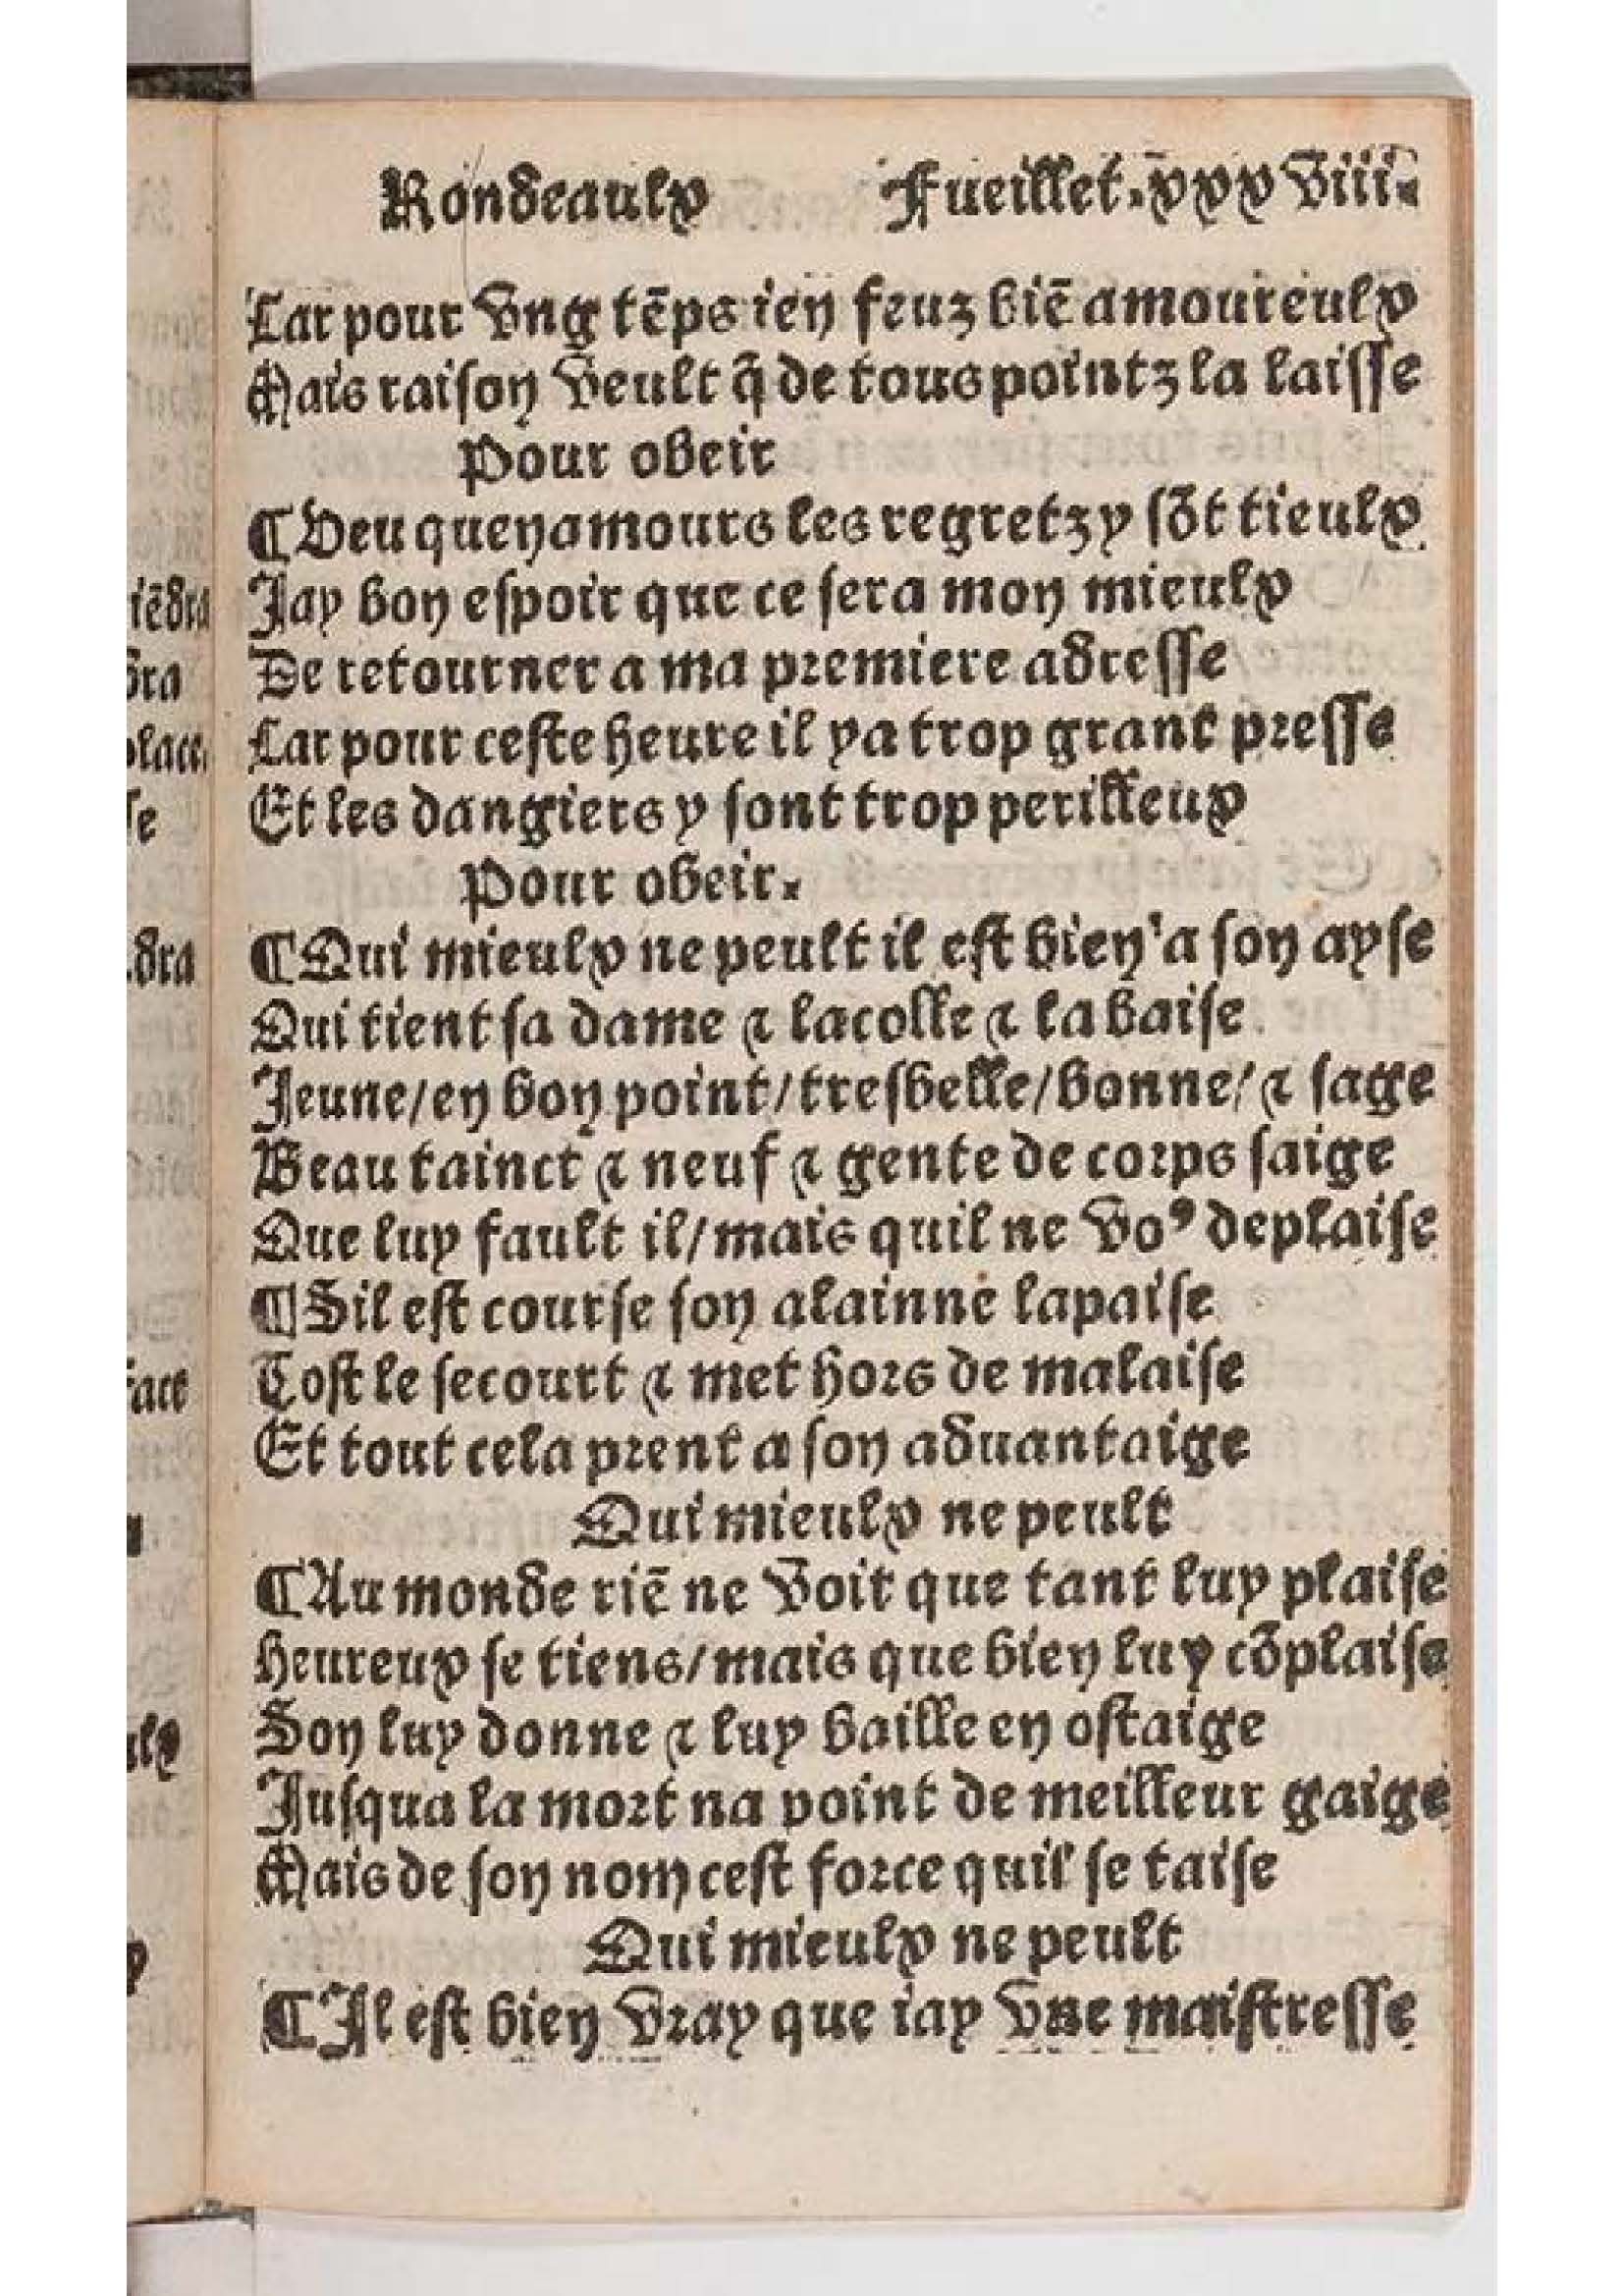 Rondeaulx Fueillet.xxxviii.
Car pour vng tẽps ien feuz biẽ amoureulx
Mais raison veult q̃ de tous pointz la laisse
Pour obeir
¶ Veu quen amours les regretz y sõt tieulx
Jay bon espoir que ce sera mon mieulx
De retourner a ma premiere adresse
Car pour ceste heure il ya trop grant presse
Et les dangiers y sont trop perilleux
Pour obeir.
¶ Qui mieulx ne peult il est bien a son ayse
Qui tient sa dame ⁊ lacolle ⁊ la baise
Jeune/en bon point/tresbelle/bonne/⁊ sage
Beau tainct ⁊ neuf ⁊ gente de corps saige
Que luy fault il/mais quil ne voꝰ deplaise
¶ Sil est course son alainne lapaise
Tost le secourt ⁊ met hors de malaise
Et tout cela prent a son aduantaige
Qui mieulx ne peult
¶ Au monde riẽ ne voit que tant luy plaise
Heureux se tiens/mais que bien luy cõplaise
Son luy donne ⁊ luy baille en ostaige
Jusqua la mort na point de meilleur gaige
Mais de son nom cest force quil se taise
Qui mieulx ne peult
¶ Il est bien vray que iay vne maistresse